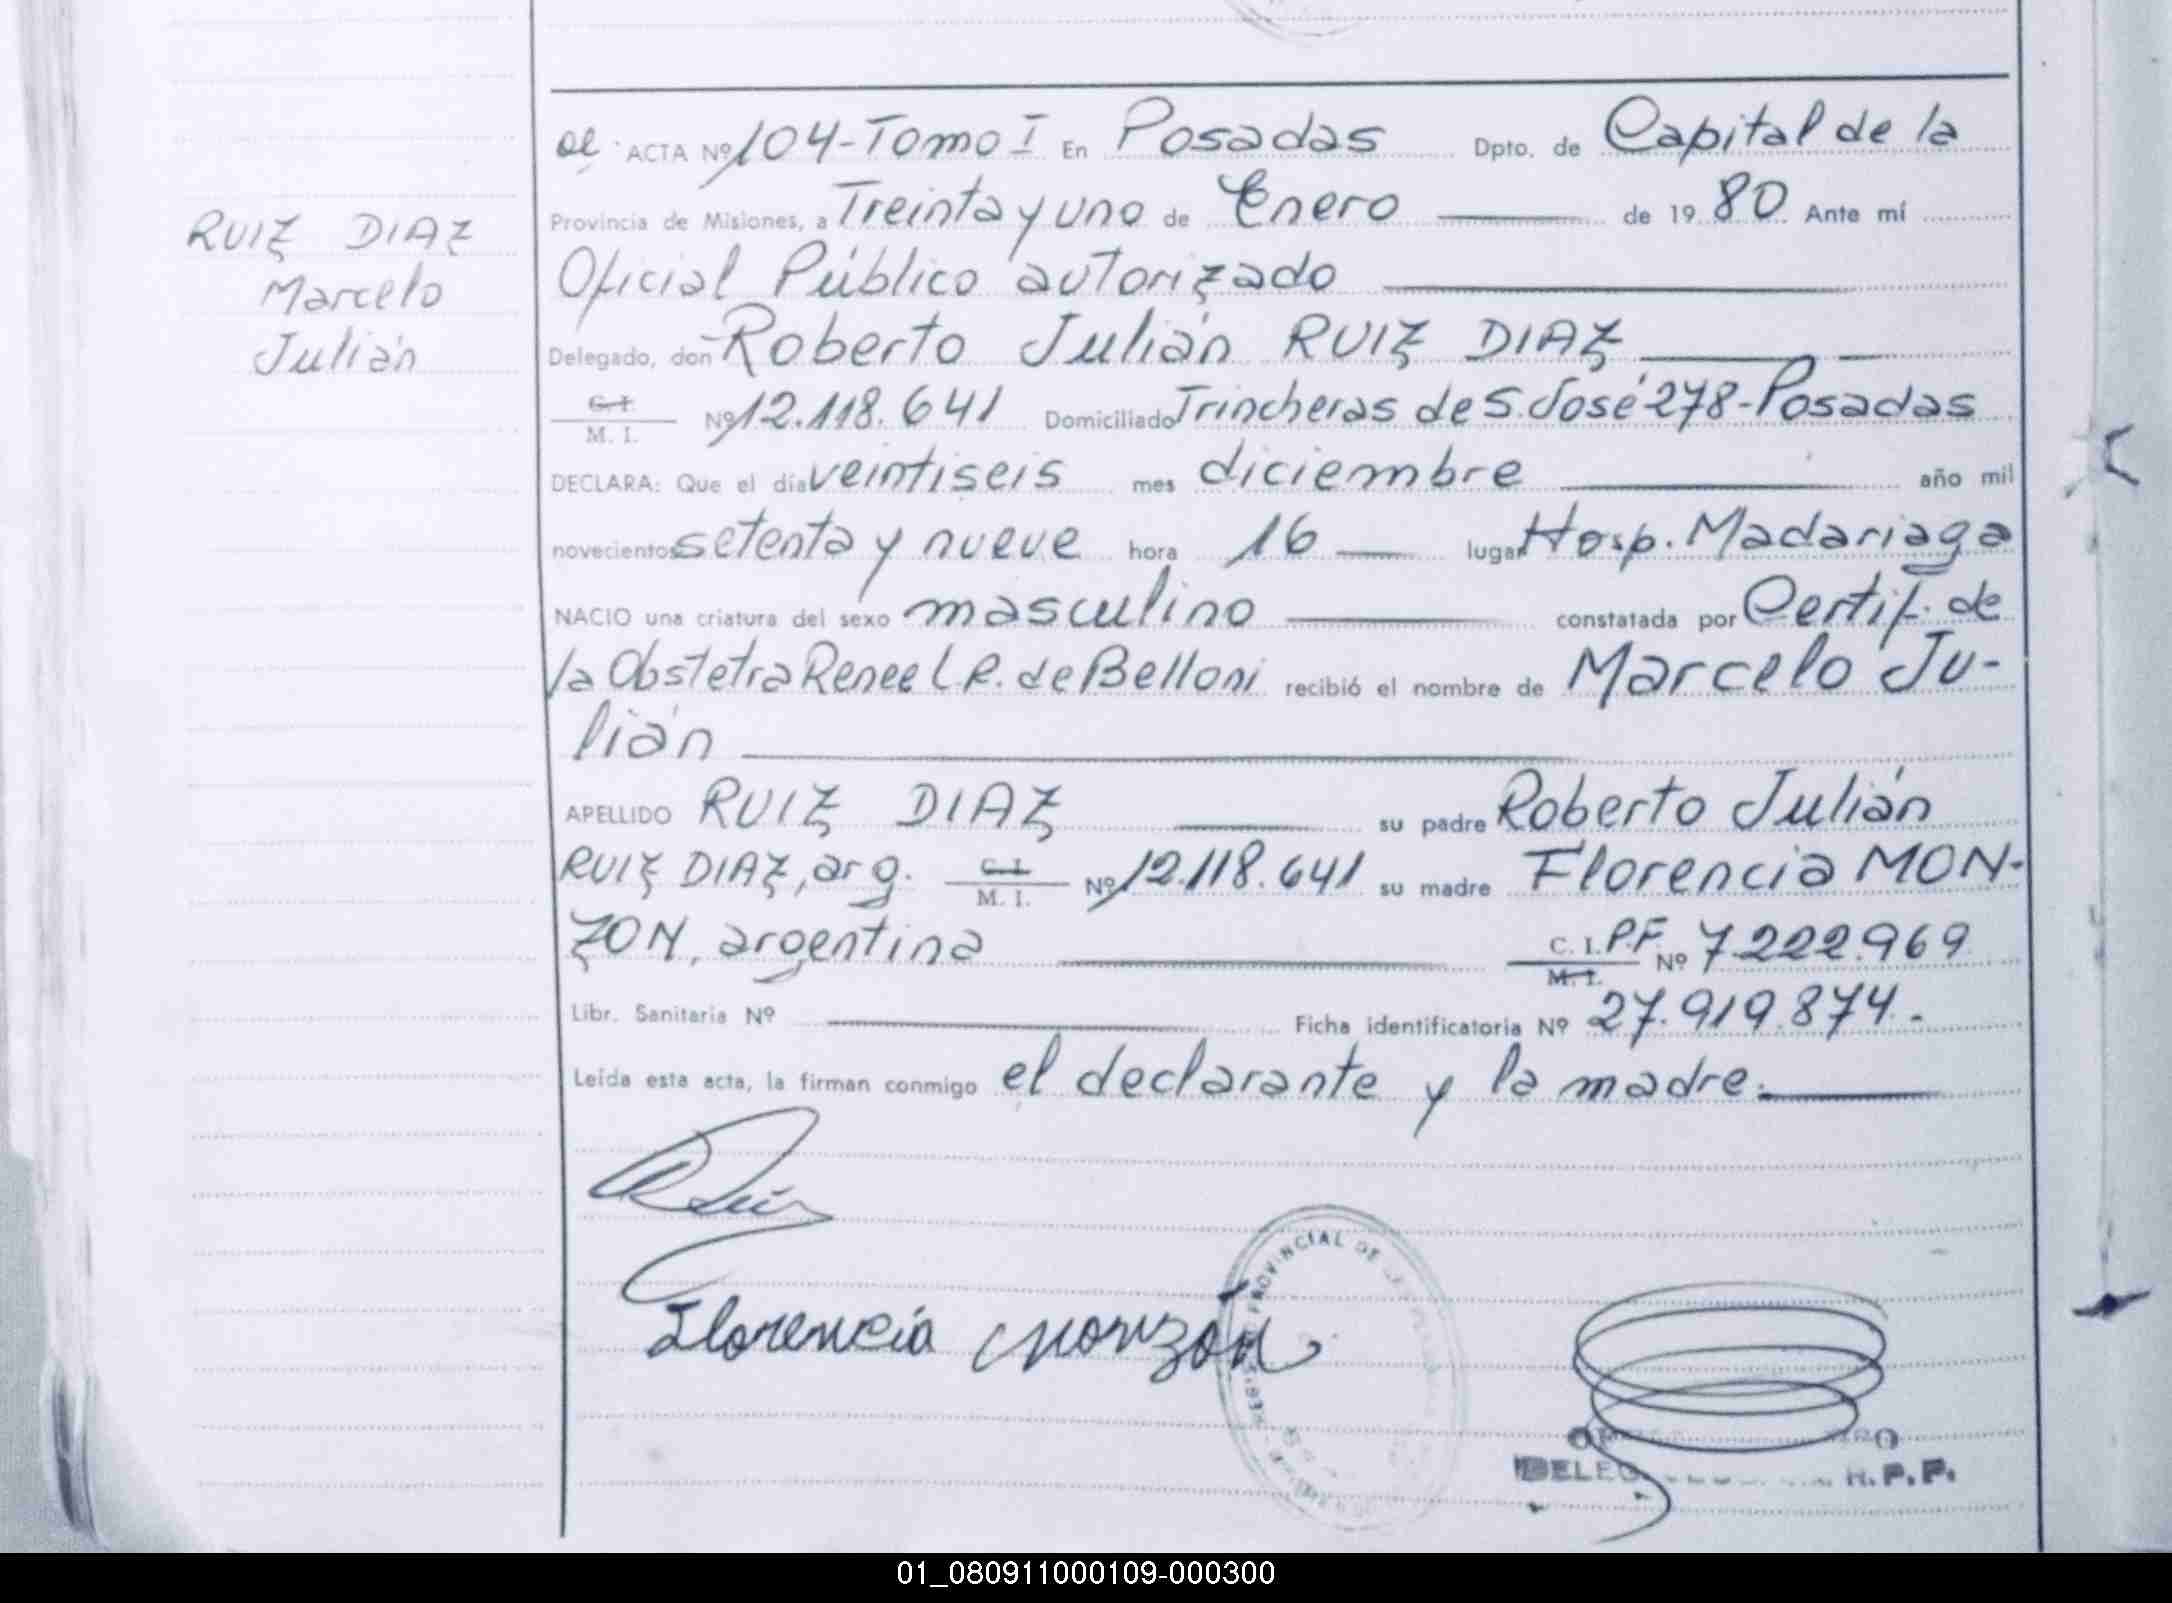 ACTA Nº 104-Tomo I En Posadas Dpto. de Capital de la
Provincia de Misiones, a Treinta y uno de Enero de 1980 Ante mí
Oficial Público autorizado
Delegado, don Roberto Julián RUIZ DIAZ
C. I.
M. I. Nº 12.118.641 Domiciliado Trincheras de S. José 278-Posadas
DECLARA: Que el día veintiseis mes diciembre año mil
novecientos setenta y nueve hora 16 lugar Hosp. Madariaga
NACIO una criatura del sexo masculino constatada por Certif. de
la Obstetra Renee L.R. de Belloni recibió el nombre de Marcelo Ju-
lián
APELLIDO RUIZ DIAZ su padre Roberto Julián
RUIZ DIAZ, arg. C. I. M. I. Nº 12.118.641 su madre Florencia MON-
ZON, argentina C. I. P.F. M. I. Nº 7.222.969
Libr. Sanitaria Nº Ficha identificatoria Nº 27.919.874.
Leída esta acta, la firman conmigo el declarante y la madre.
RUIZ DIAZ
Marcelo
Julián
Florencia Monzón
PROVINCIAL DE
H.P.P.
01_080911000109-000300